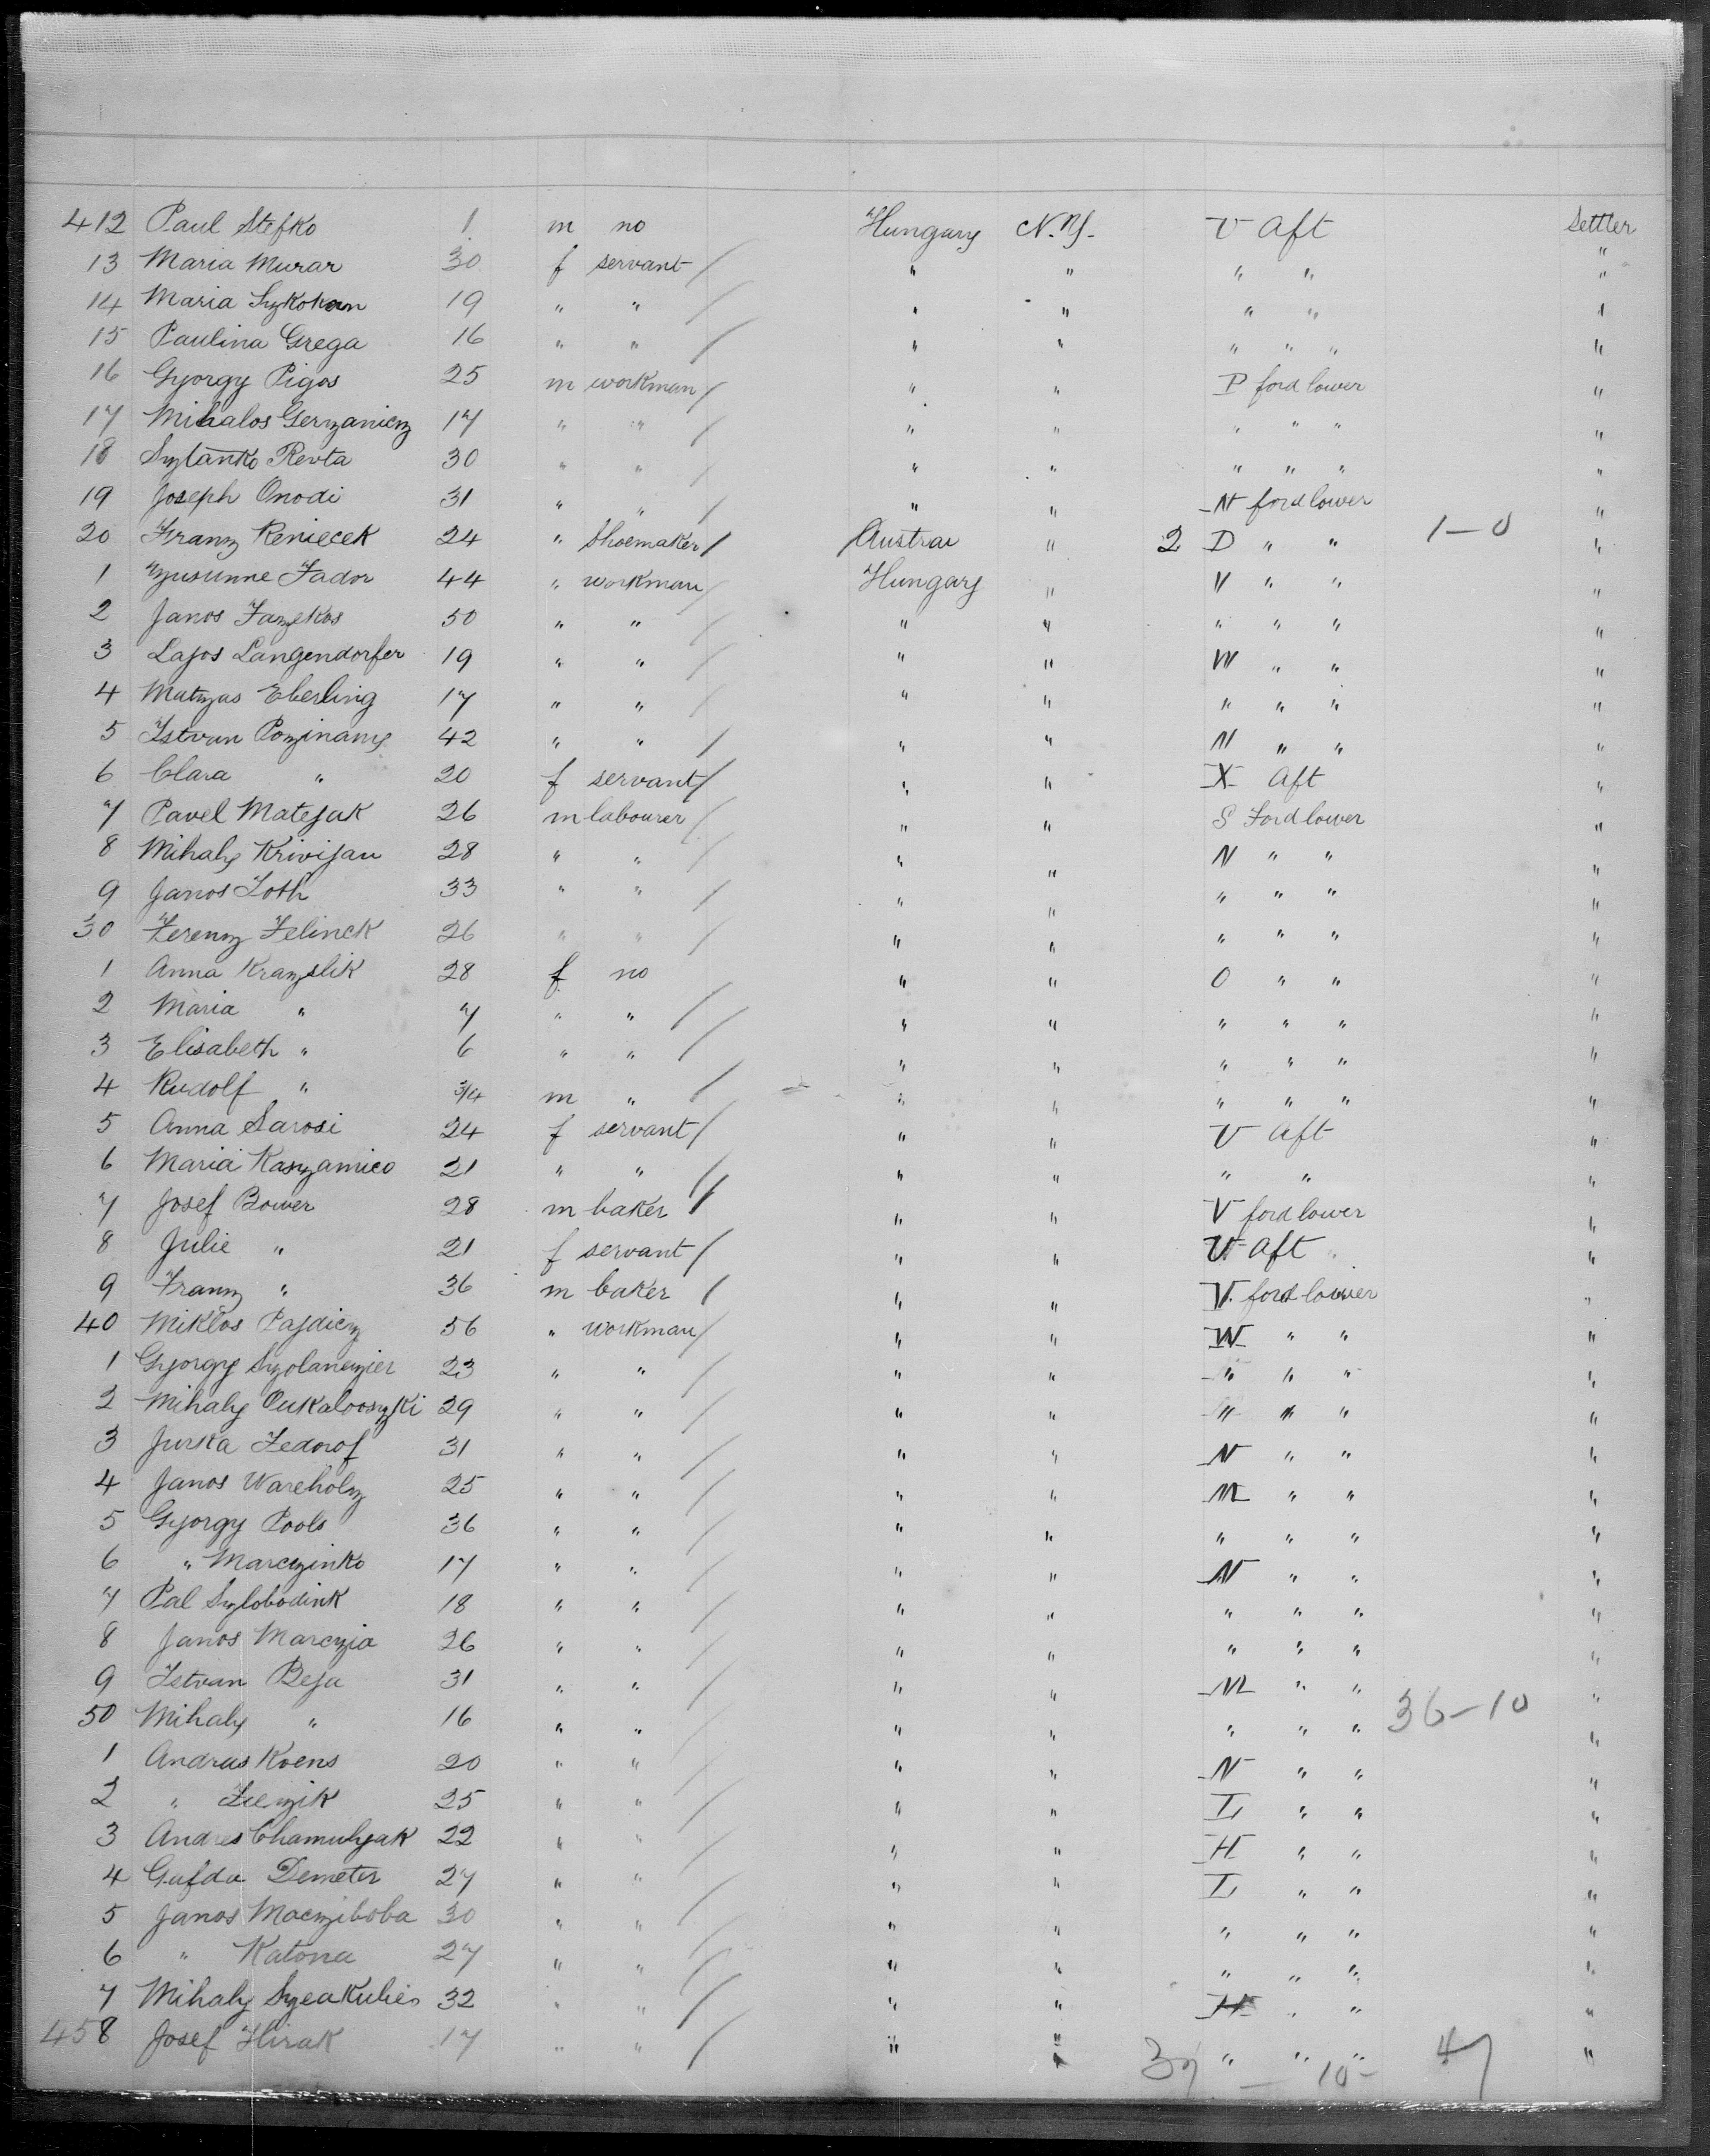 412 Paul Stefko 1 m no Hungary N.Y. V Aft Settler
13 Maria Murar 30 f servant / " " " " "
14 Maria Szkokan 19 " " / " " " " "
15 Paulina Grega 16 " " / " " " " " "
16 Gyorgy Pigos 25 m workman / " " P ford lower "
17 Mihalos Gerzanicz 17 " " / " " " " " "
18 Sztanko Revta 30 " " / " " " " " "
19 Joseph Onodi 31 " " / " " N ford lower "
20 Franz Reniecek 24 " Shoemaker / Austrai " 2 D " " 1-0 "
1 Zusunne Fador 44 " workman / Hungary " V " " "
2 Janos Fazekas 50 " " / " " " " " "
3 Lajos Langendorfer 19 " " / " " W " " "
4 Matyas Eberling 17 " " / " " " " " "
5 Istvan 42 " " / " " N " " "
6 Clara " 20 f servant / " " X Aft "
7 Pavel Matejak 26 m labourer / " " S Ford lower "
8 Mihaly Krivijan 28 " " / " " N " " "
9 Janos Toth 33 " " / " " " " " "
30 Ferenz Jelinek 26 " " / " " " " " "
1 Anna Krazslik 28 f no " " O " " "
2 Maria " 7 " " / " " " " " "
3 Elisabeth " 6 " " / " " " " " "
4 Rudolf " 3/4 m " / " " " " " "
5 Anna Sarosi 24 f servant / " " V Aft "
6 Maria Kaszamico 21 " " / " " " " "
7 Josef Bower 28 m baker / " " V ford lower "
8 Julie " 21 f servant / " " V Aft "
9 Franz " 36 m baker / " " V ford lower "
40 Miklos Pajdicz 56 " workman / " " W " " "
1 Gyorgy Szolanczier 23 " " / " " " " " "
2 Mihaly Oukalooszki 29 " " / " " " " " "
3 Jurka Fedorof 31 " " / " " N " " "
4 Janos Wareholz 25 " " / " " M " " "
5 Gyorgy Pools 36 " " / " " " " " "
6 " Marczinko 17 " " / " " N " " "
7 Pal Szlobodink 18 " " / " " " " " "
8 Janos Marczia 26 " " / " " " " " "
9 Istvan Beja 31 " " / " " M " " "
50 Mihaly " 16 " " / " " " " " 36-10 "
1 Andras Koens 20 " " / " " N " " "
2 " 25 " " / " " L " " "
3 Andres Chamulyak 22 " " / " " H " " "
4 Gafda Demeter 27 " " / " " L " " "
5 Janos Maeziboba 30 " " / " " " " " "
6 " Katona 27 " " / " " " " " "
7 Mihaly Szeakulies 32 " " / " " H " " "
458 Josef Hirak 17 " " / " " " " " "
37 - 10 - 47